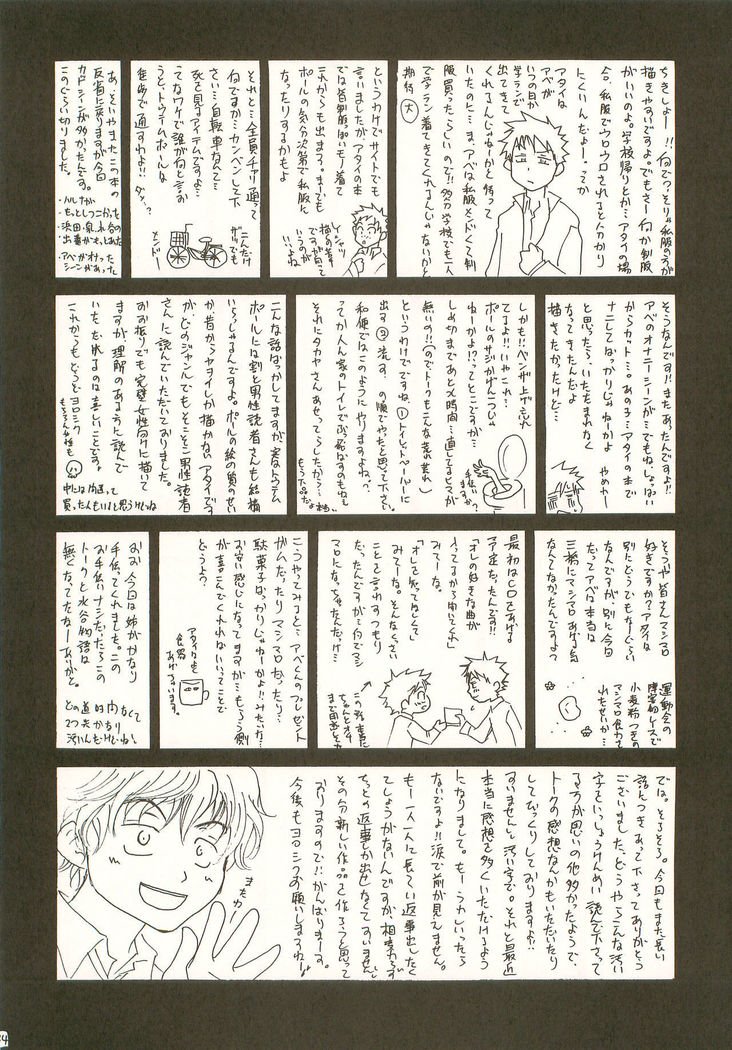 ちきしょー!!何で?そりゃ私服の方が
描きやすですよ。でもさー何か制服
がいいのよ。学校帰りとか…アタイの場
合、私服でウロウロされると分かり
にくいんだよー。ってか
アタイは
アベが
いつの日か
学ランで
出てきて
くれるんじゃねーかと待って
いたのに…ま、アベは私服メンドくて制
服買ったらしいので!!多分学校でも一人
で学ラン着てきてくれるんじゃないかと
期待 大
というわけでサイトでも
言いましたがアタイの本
では皆制服ぽいモノ着て
これからも出ます。まーでも
ポールの気分次第で私服に
なったりするかもよ
シャツ
描くの楽
ですが困って
いうのが
…よね
それと…全員チャリ通って
何ですか…カンベンして下
さい…自転車なんて…
死を見るアイテムですよ…
てなワケで誰が何と言お
うと、トウテムポールは
徒歩で通すわよ!!ダッ
こんだけ
ザツでも
メンドー
あ、そいやまたこの本の
反省に戻りますが今回
カットシーンが多かったんです。
このぐらい切りました。
・ハルナが
もっとしつこかった
・浜田・泉・水谷の
出番がもっとあった
・アベがオナった
シーンがあった
そうなんです!!またあったんですよ!!
アベのオナニーシーンが…でもねしょっぱい
からカット…。あの子…アタイの本で
ナニしてばかりじゃねーかよ
と思ったら、いたたまれなく
なってきたんだよ
描きたかったけど…
やめれー
しかも!!ベンザ上げ忘れ
てるよ!!いやこれ…
ポールのサジかげんつっしょ
ねーかよ!?ってとこですが…
しめ切まであと〆時間…直してるヒマが
無いの!!(のでトークもこんな荒れ荒れ)
というわけでですね、①トイレットペーパーに
出す②流す、の順でやったと思って下さい。
和便ではこのようにやりますよね?
ってか人ん家のトイレでぶっ放すのもねし
それにタカヤさんあせってらしたから?
もう下品だよ
こんな話ばっかしてますが、実はトウテム
ポールには割と男性読者さんも結構
いらっしゃるんですよ。ポールの絵の質のせい
か昔からヤヲイしか描かないアタイです
が、どのジャンルでもそこそこ男性読者
さんに読んでいただいておりました。
おお振りでも完璧女性向けに描いて
ますが理解のある方に読んで
いただけるのは嬉しいことです。
これからもどうぞヨロシク
もちろん女性も
中には間違って
買った人もいると思うけどね
そういや皆さんマシマロ
好きですか?アタイは
別にどうでもなーぐらい
なんですが、別に今回
だってアベは本当は
三橋にマシマロあげる気
なんてなかったんですよ?
運動会の
障害物レースで
小麦粉つきの
マシマロ食わさ
れたせいか…
最初はCDをあげる
予定だったんです!!
「オレの好きな曲が
入ってるから聞いてくれ」
みてーな。
「オレと思ってほしくて」
みてーな。そんなくさい
ことを言われすつもり
だったんですが…何でマシ
マロになっちゃたんだっけ…
こうやってみると…アベくんのプレゼント
ガムだったりマシマロだったり…
駄菓子ばっかりじゃねーかよ!!みたいな…
お安い感じになってますが…もらう側
が喜こんでくれればいいってことで
どうよう?
アタイはよく
食器
あげています。
おお、今回は姉がかなり
手伝ってくれました。この
お手伝いナシだったらこの
トークと水谷物語は
無くなってたなーありがと。
との道時間なくて
2つ共かなり
汚いんだけどね
では。そろそろ。今回もまた長い
話につきあって下さってありがとう
ございました。どうやらこんな汚い
字をいっしょうけんめい読んで下さって
る方が思いの他多かったようで、
トークの感想なんかもいただいたり
してびっくりしております!!
すいませんと汚い字で。それと最近
本当に感想を多くいただけるよう
になりまして。もーうれしいったら
ないですよ!!涙で前が見えません。
も一人一人に長くい返事出したく
てしょうがないんですが、相変わらず
ちょっとの返事しか出せなくてすいません
その分新しい作品を作ろうと思って
おりますので!!がんばいまーす。
今後もヨロシクお願いしまっるねー!
またねー